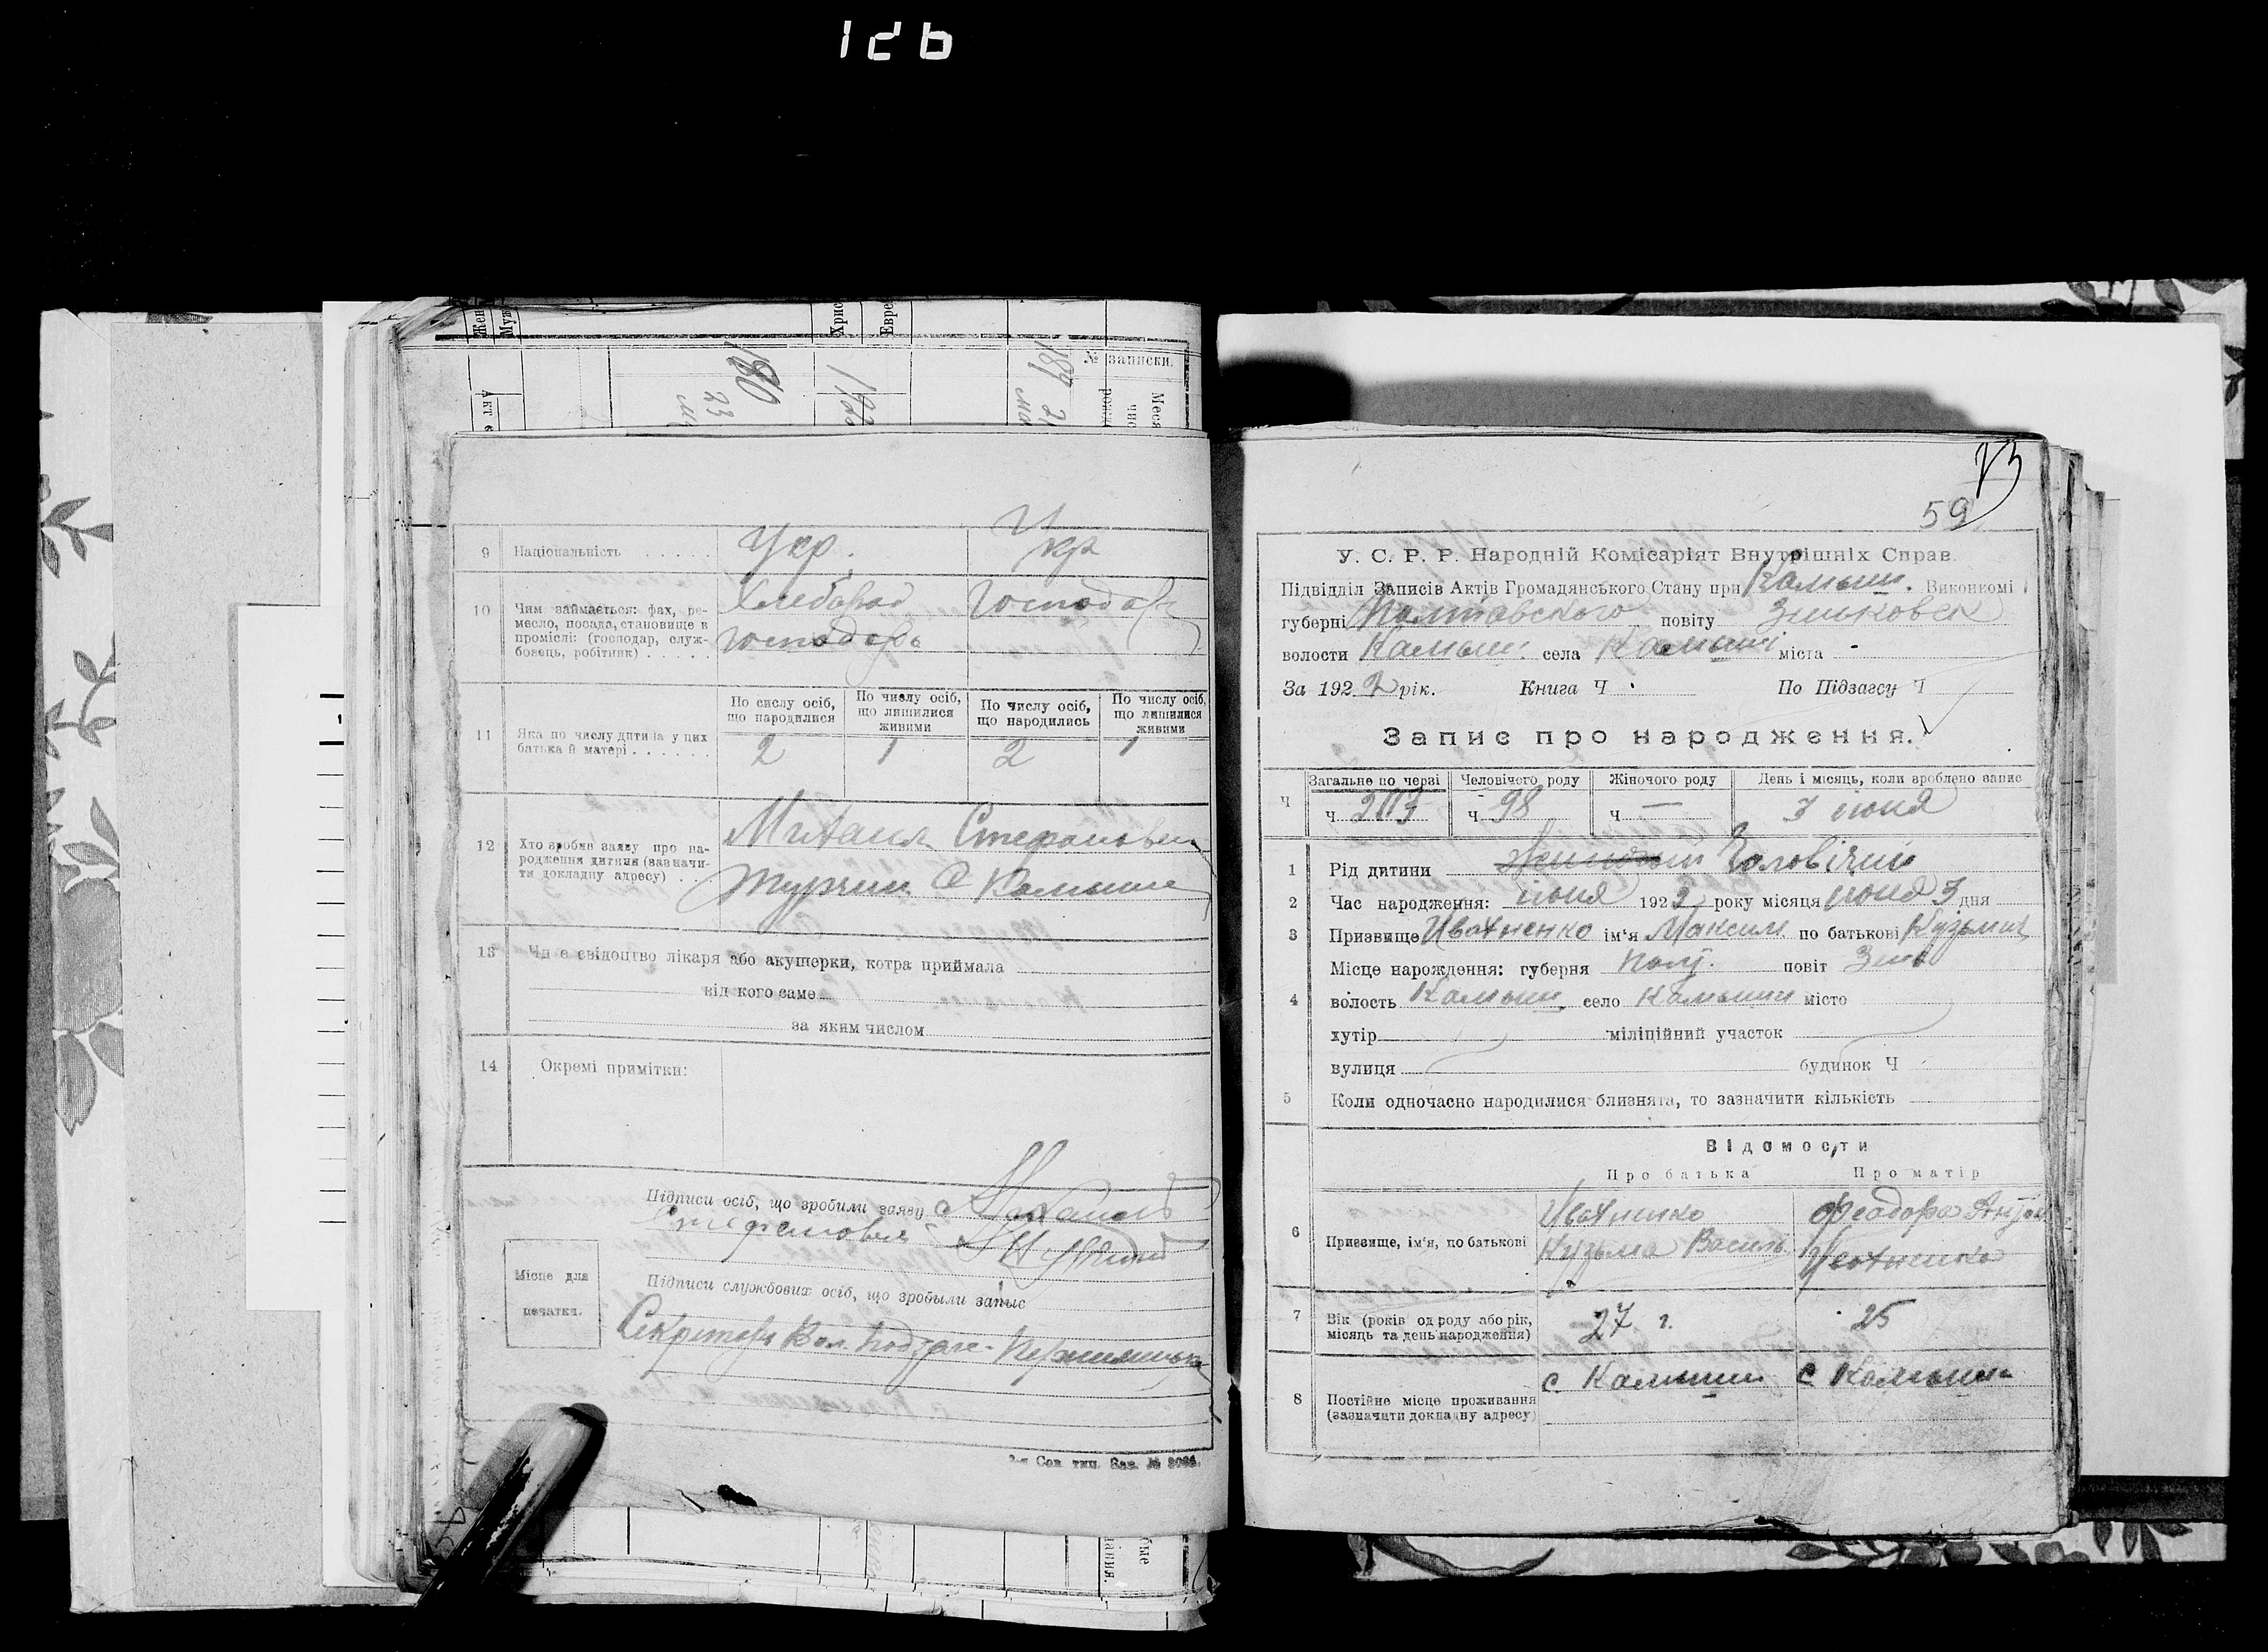 126
Жен
Муж
Хрис
Евре
180
23
189
№ записки.
Меся
Акт
9 Національність
Укр.
Укр
10 Чим займається: фах, ре-
месло, посада, становище в
промислі: (господар, служ-
бовець, робітник)
Хлебороб
господарь
Господарь
11 Яка по числу дитина у цих
батька й матері
По сислу осіб,
що народилися
По числу осіб,
що лишилися
живими
По числу осіб,
що народились
По числу осіб,
що лишилися
живими
2 1 2 1
12 Хто зробив заяву про на-
родження дитини (зазначи-
ти докладну адресу)
Михаил Стефанович
С Камыши
13 Чи є свідоцтво лікаря або акушерки, котра приймала
від кого саме
за яким числом
14 Окремі примітки:
Підписи осіб, що зробили заяву
Стефанович
Підписи службових осіб, що зробыли запыс
Секретарь Вол. Подзагс
Місце для
печатки.
Сов. тип. Зак. №
59
У. С. Р. Р. Народній Комісаріят Внутрішніх Справ.
Підвідділ Записів Актів Громадянського Стану при Камыш. Виконкомі
губерні Полтавского повіту Зиньковск
волости Камыш. села Камыші міста
За 1922 рік. Книга Ч По Підзагсу Ч
Запис про народження.
Ч
Загальне по черзі
Человічого роду
Жіночого роду
День і місяць, коли зроблено запис
ч 203
ч 98
ч —
3 июня
1 Рід дитини Чоловічий
2 Час народження: июня 1922 року місяця июня 3 дня
3 Призвище Ивахненко ім'я Максим по батькові Кузьмич
Місце народження: губерня Полт. повіт Зинь
4 волость Камыш. село Камыши місто
хутір міліційний участок
вулиця будинок Ч
5 Коли одночасно народилися близнята, то зазначити кількість
Відомости
Про батька Про матір
6 Призвище, ім'я, по батькові
Ивахненко
Кузьма Василь.
Феодора Антон
Ивахненко
7 Вік (років од роду або рік,
місяць та день народження)
27 г.
25
8 Постійне місце проживання
(зазначити докладну адресу)
с. Камыши
с Камыши